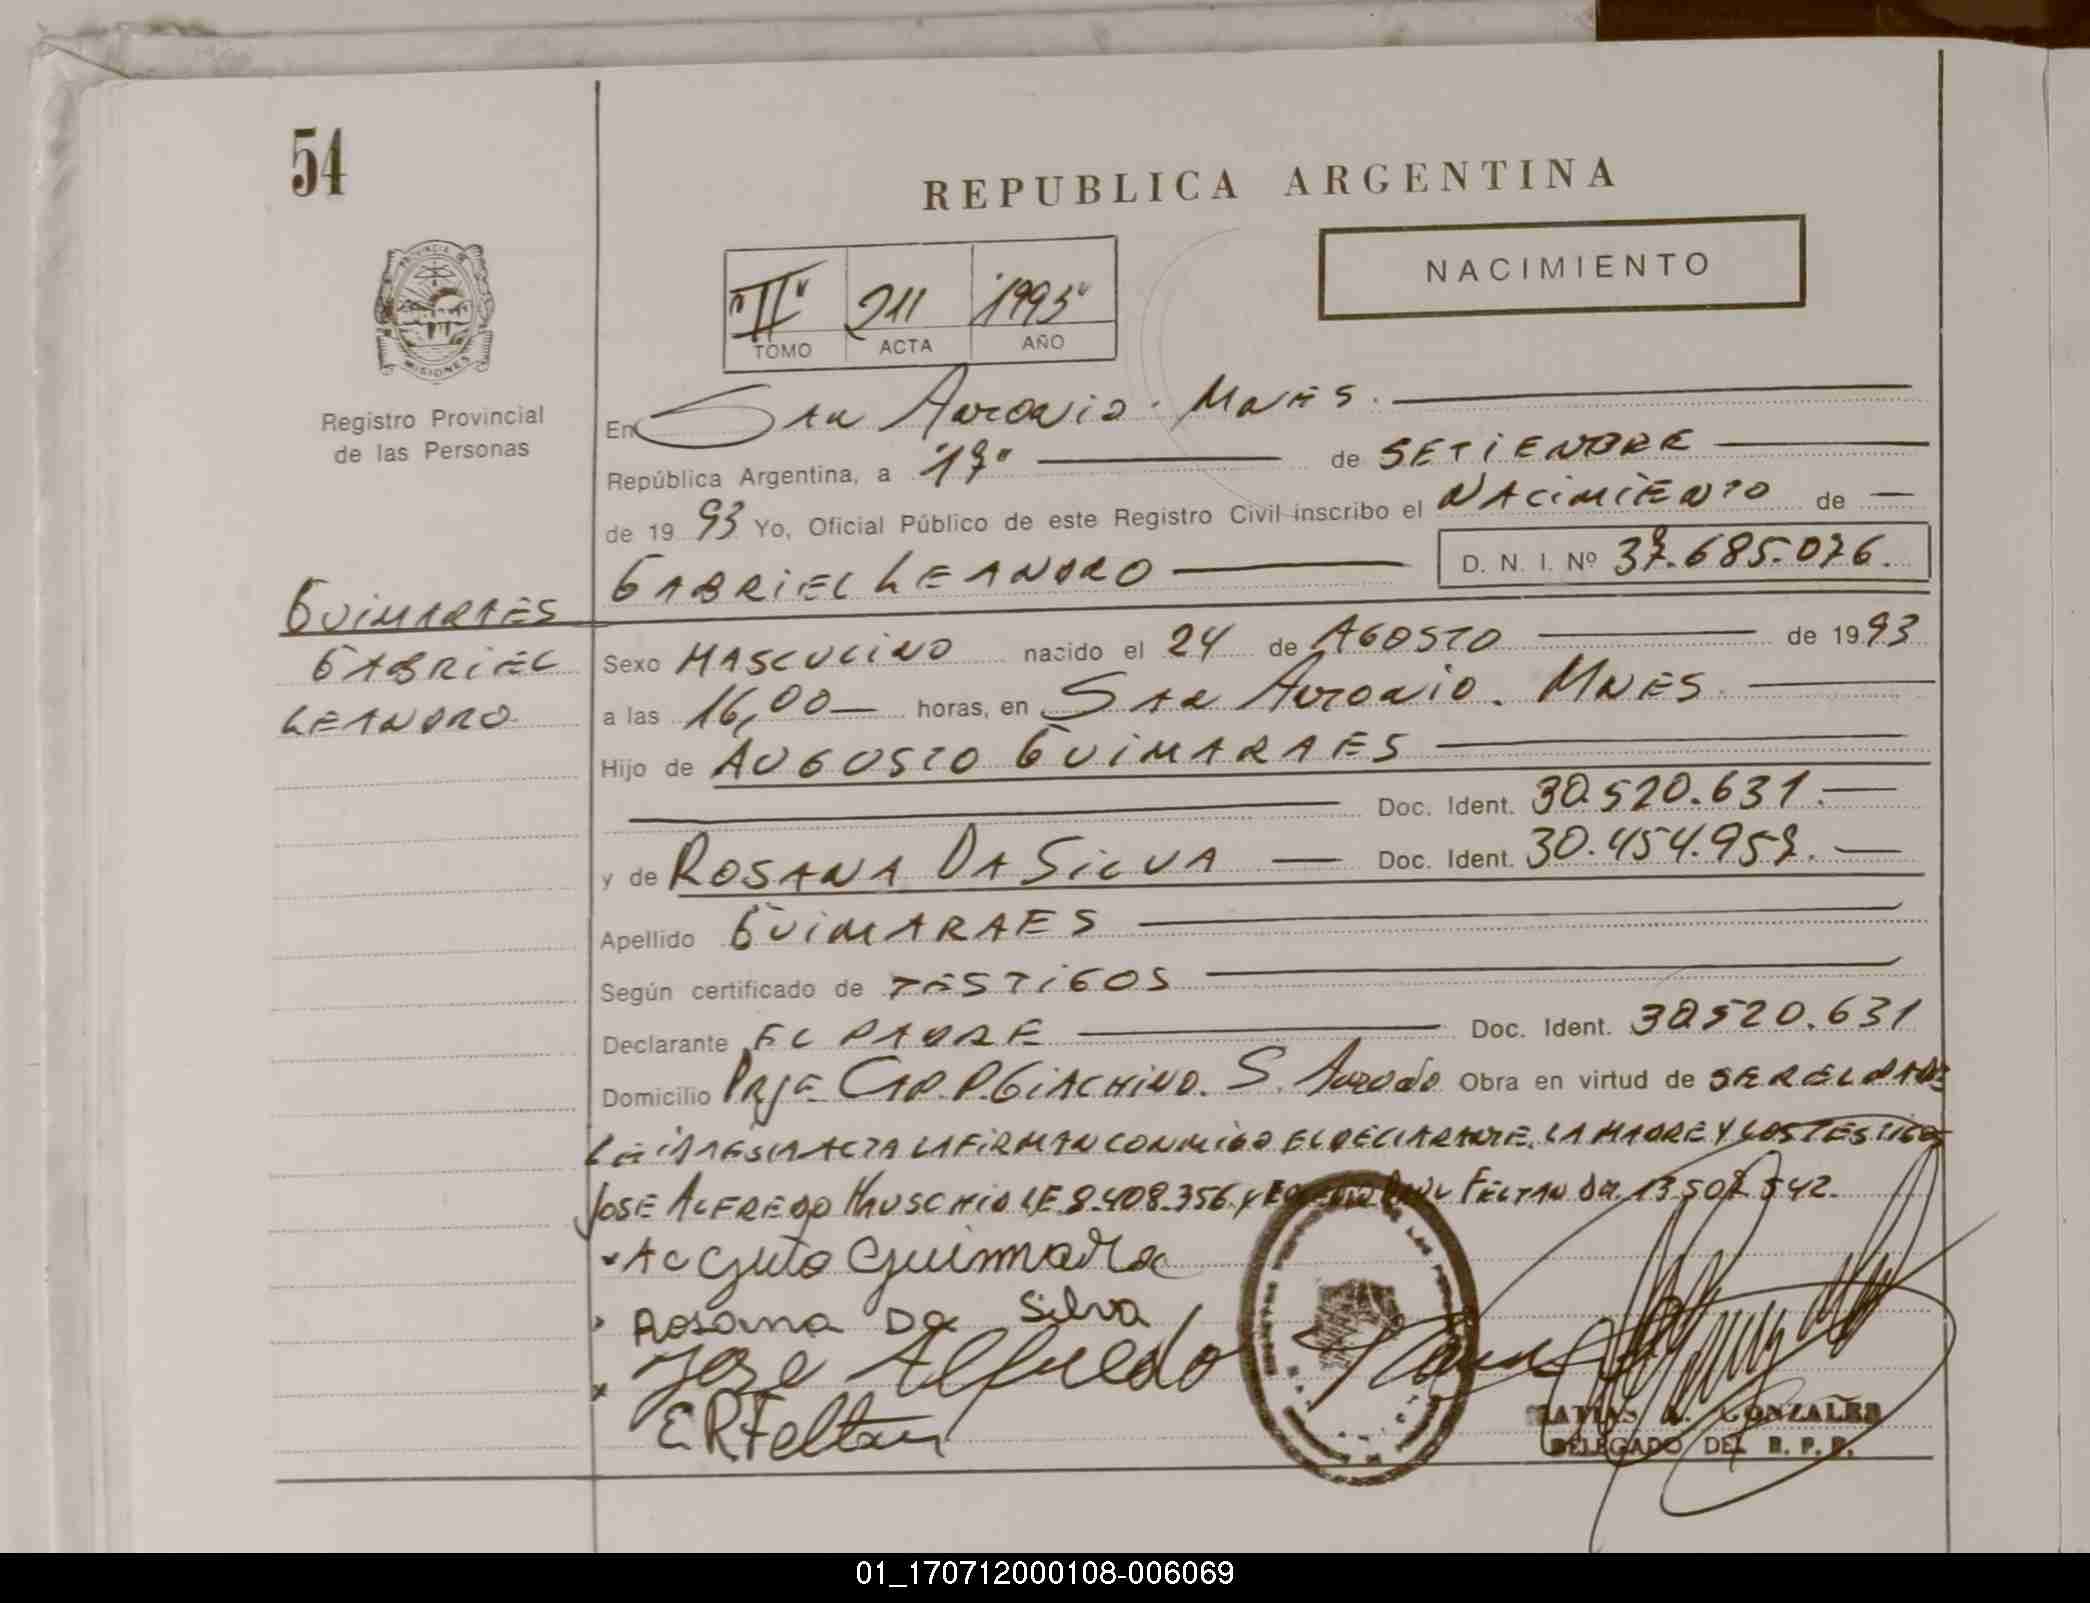 54
REPUBLICA ARGENTINA
NACIMIENTO
PROVINCIA DE
MISIONES
"II" 211 "1993"
TOMO ACTA AÑO
Registro Provincial
de las Personas
En San Antonio. Mnes.
República Argentina, a "17" de SETIENBRE
de 1993 Yo, Oficial Público de este Registro Civil inscribo el NACIMIENTO de
GABRIEL LEANDRO D. N. I. Nº 37.685.076.
GUIMARAES
GABRIEL
LEANDRO
Sexo MASCULINO nacido el 24 de AGOSTO de 1993
a las 16,00 horas, en San Antonio. MNES.
Hijo de AUGUSTO GUIMARAES
Doc. Ident. 30.520.631.
y de ROSANA DA SILVA Doc. Ident. 30.454.957.
Apellido GUIMARAES
Según certificado de TESTIGOS
Declarante EL PADRE Doc. Ident. 30520.631
Domicilio Pje. CAP. P. GIACHINO. S. Antonio Obra en virtud de SER EL PADRE
LEIDA ESTA ACTA LA FIRMAN CONMIGO EL DECLARANTE, LA MADRE Y LOS TESTIGOS
JOSE ALFREDO LE 8.408.356 y FELTAN DNI. 13507542.
Guimara
Rosana Da Silva
Jose Alfredo
E R Feltan
MATIAS GONZALEZ
DELEGADO DEL R. P. P.
01_170712000108-006069